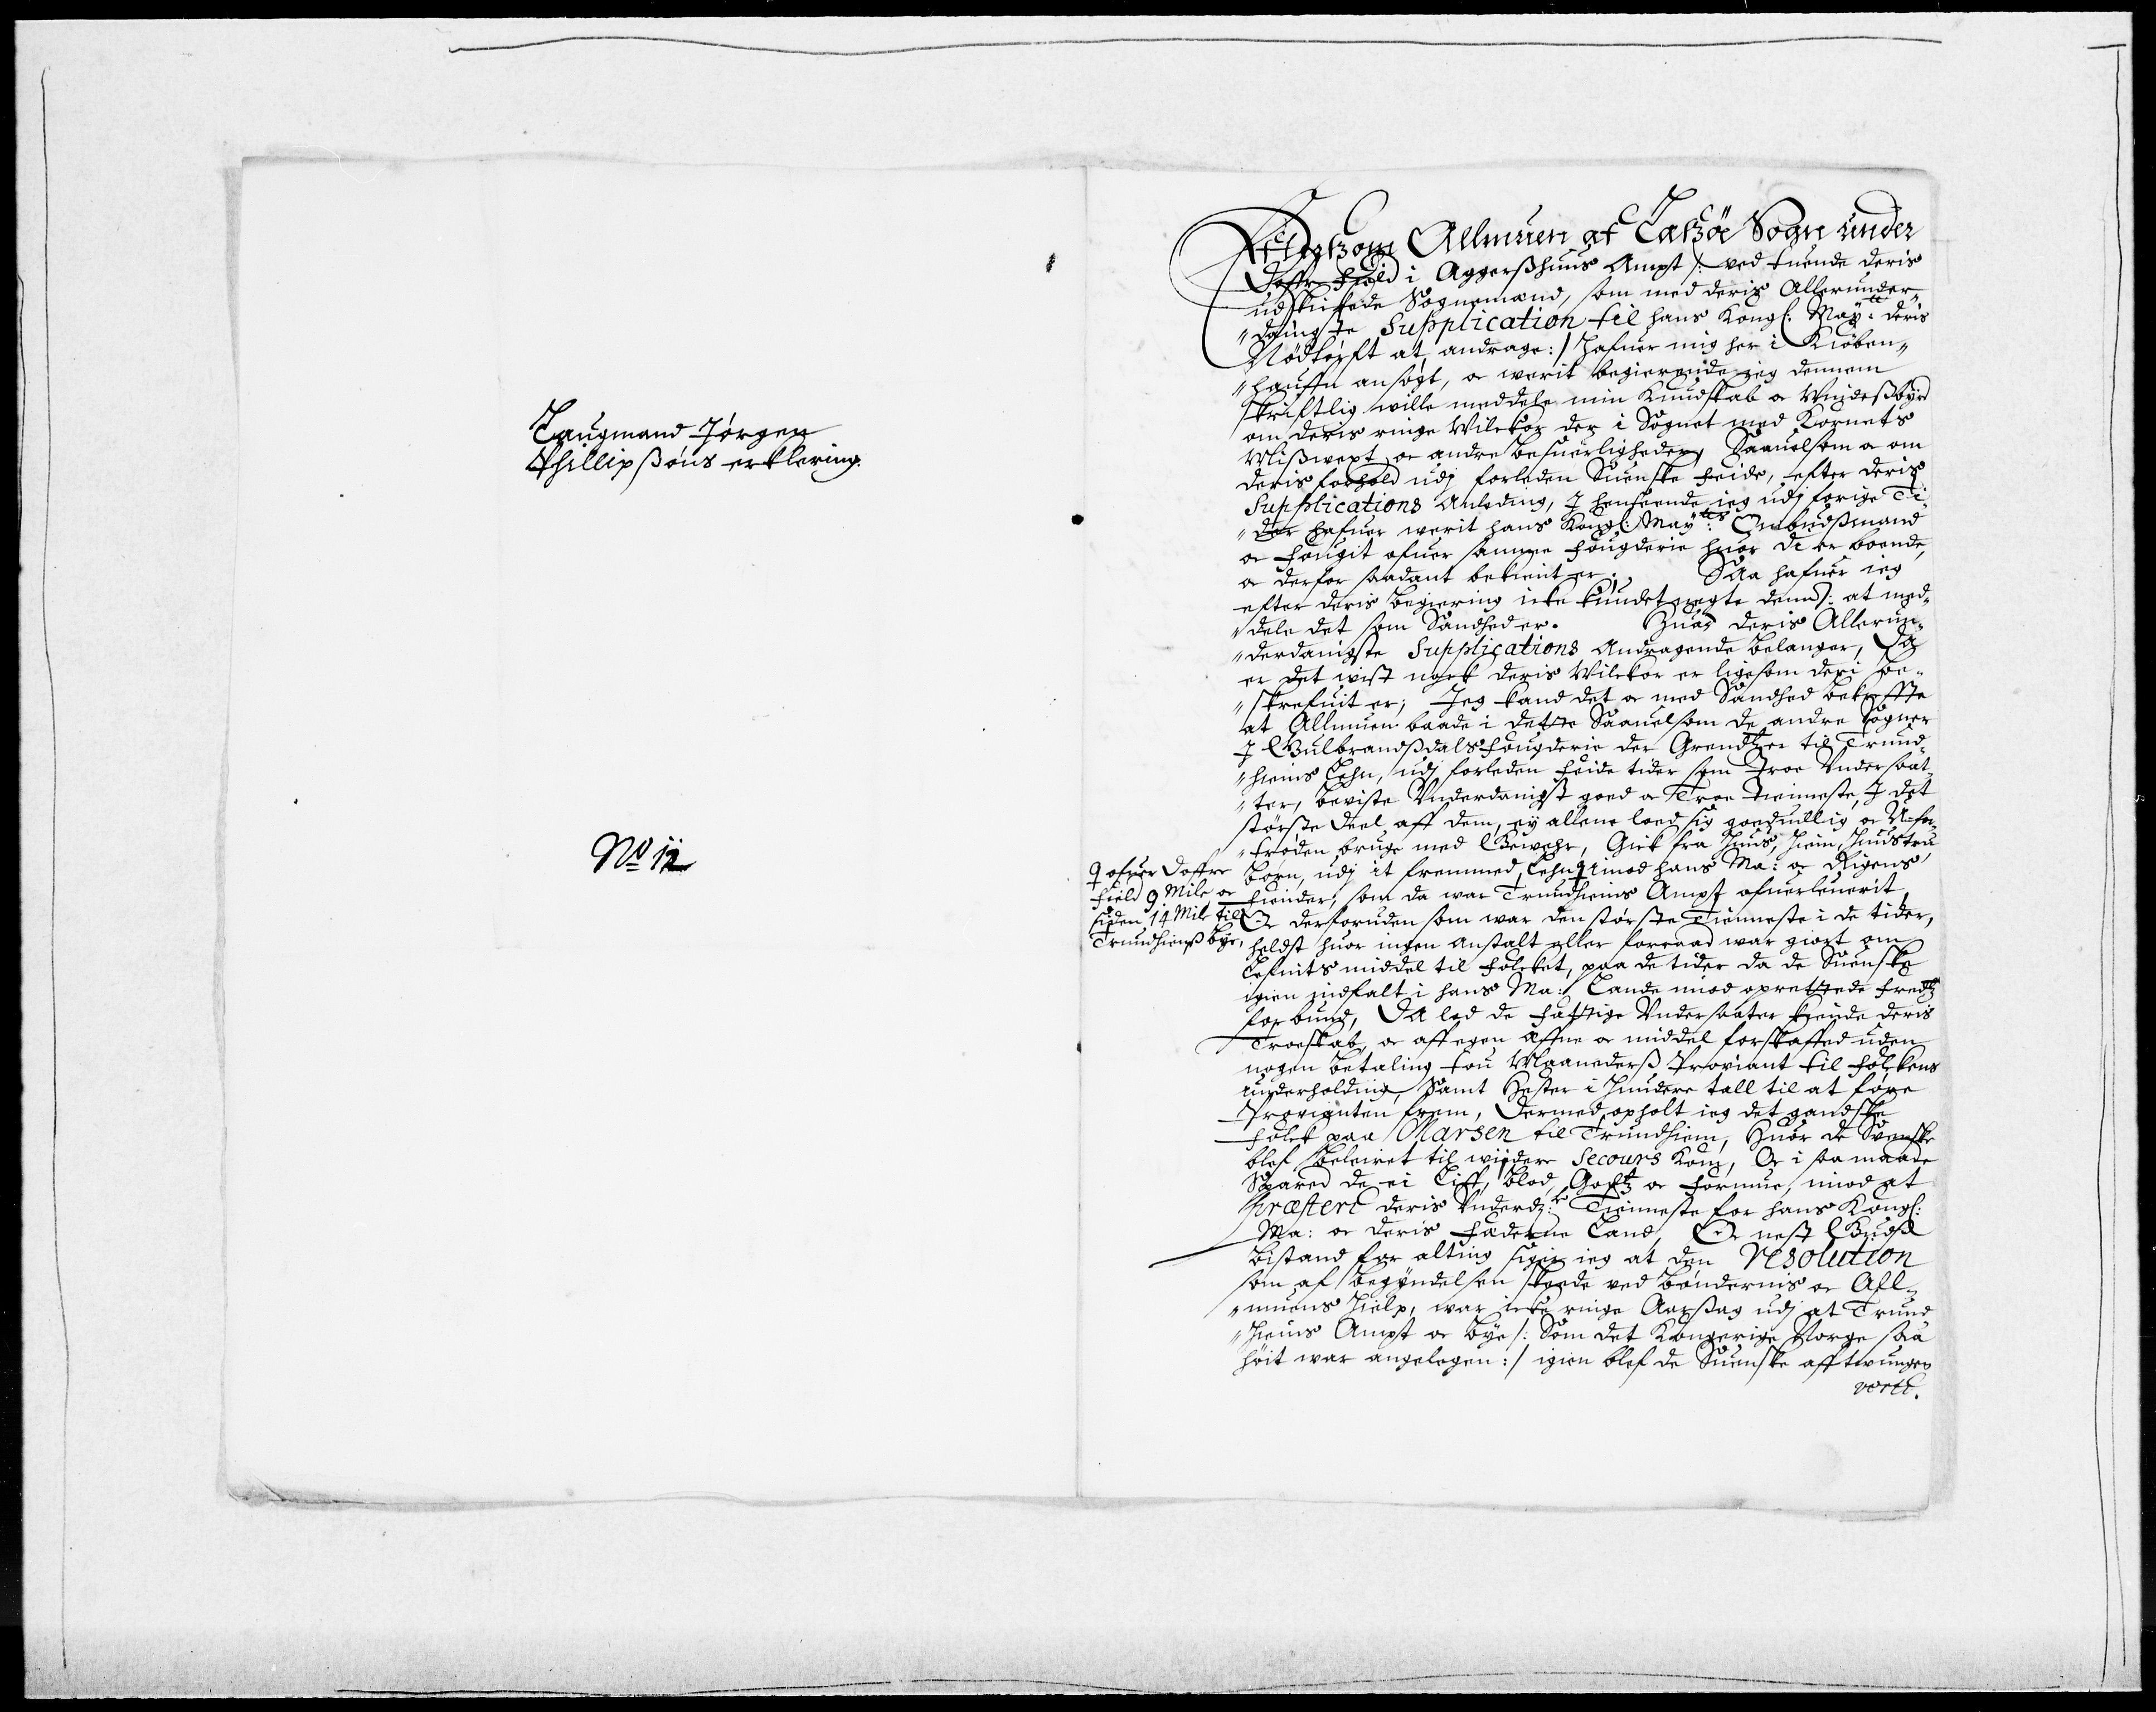 Laugmand Jörgen
Phillipßöns erklering.
No 12
Efftersom Allmuen af Læßöe Sogn under
Doffre Field i Aggerßhuus Ampt /: ved tuende deris
udskickede Sognemænd, som med deris Allerunder„
„danigste Supplication til hans Kongl. Mayᵗᵗ: deris
Nödtörft at andrage :/ hafuer mig her i Kiöben„
„hauffn ansögt, oc werit begierende jeg dennem
skriftlig wille meddele min Kundskab oc Vindeßbyrd
om deris ringe Wilckor der i Sognet med Kornets
Mißwext, oc andre besuerligheder, Saauelsom oc om
deris forhold udj forleden Suenske feide, efter deris
Supplications Anleding, J henseende ieg udj forige Ti„
„der hafuer werit hans Kongl: Mayᵗᵗˢ: Ombudßmand
oc fougit ofuer samme fougderie huor de er boende,
oc derfor saadant bekient er. Saa hafuer ieg
efter deris begiering icke kundet negte dem /: at med„
„dele det som Sandhed er. Huad deris Allerun„
„derdanigste Supplications Andragende belanger, Da
er det wist nock deris Wilckor er ligesom deri be„
„skrefuit er; Jeg kand det oc med Sandhed bekreffte
at Allmuen baade i dette Saauelsom de andre Sogner
J Gulbrandßdals fougderie der Grendtzer til Trund„
„hiems Lehn, udj forleden feide tider som troe Vndersaat„
„ter, beviste Vnderdanigst goed oc Troe tienneste, J det
störste Deel aff dem, ey allene loed sig goeduillig oc
„tröden bruge med Gewehr, Gick fra Huus, Hiem, Hustru
Börn, udj it fremmed Lehn imod hans Ma: oc Rigens
fiender, som da war Trundhiems Ampt ofuerleuerit,
ofuer Doffre
Field 9 Mile oc
siden 14 Mile til
Trundhiemß bye,
Oc derforuden som war den störste Tienneste i de tider,
heldst huor ingen anstalt eller forraad war giort om
Lefnits middel til folcket, paa de tider da de Suenske
igien indfalt i hans Ma: Lande imod oprettede fredtz
forbund, Da lod de fattige Vndersaater kiende deris
Troeskab, oc aff egen æffne oc middel forskaffed uden
nogen betaling tou Maanederß Proviant til folckens
underholding, Samt Hester i hundere tall til at före
Provianten frem, Dermed opholt ieg det gandske
folck paa Marsen til Trundhiem, Huor de Svenske
blef beleiret til wijdere Secours kom, Oc i saa maade
Spared de ei Liff, blod, Gotz oc formue, imod at
præstere deris Vnderdᵉ: Tienneste for hans Kongl:
Ma: oc deris fæderne Land, Oc nest Gudß
bistand for alting siger ieg at den Resolution
som af begyndelsen skeede ved böndernis oc All„
„muens hielp, war icke ringe Aarsag udj at Trund
„hiems Ampt oc bye /: Som det Kongerige Norge saa
höit war angelegen :/ igien blef de Suenske afftwungen